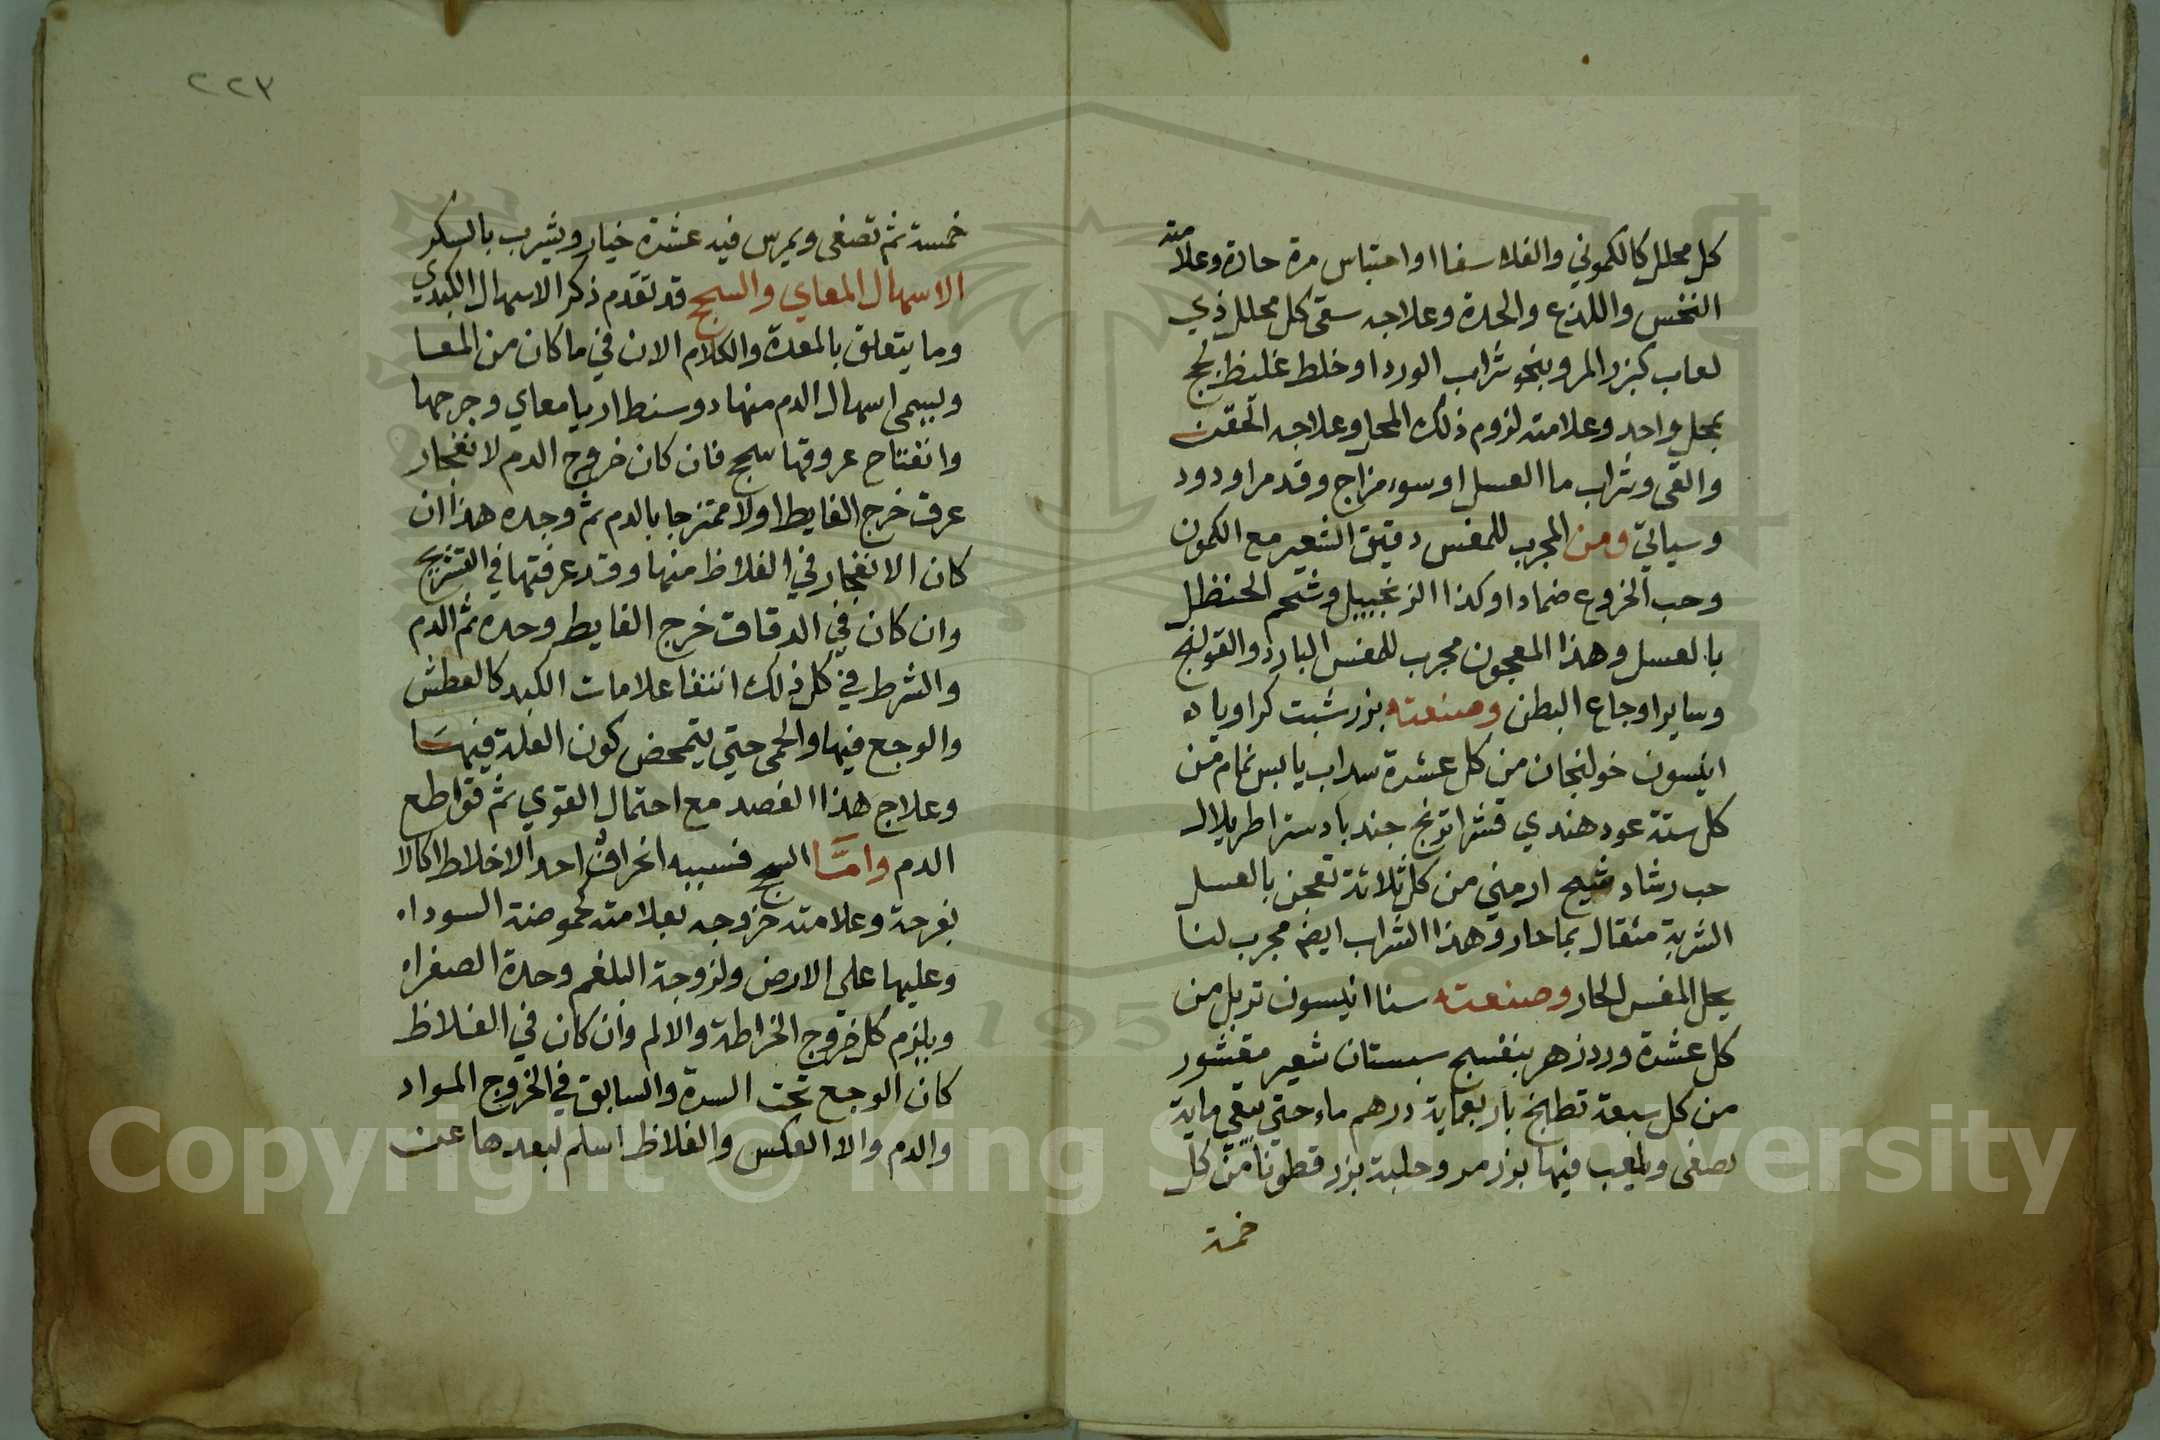 كل محلل كالكموني والفلاسفا او احتباس مرة حادة وعلامته
النخس واللذع والحدة وعلاجه سقى كل محلل ذي
لعاب كبزر المر وبنحو شراب الورد او خلط غليظ لحج
بمحل واحد وعلامته لزوم ذلك المحل وعلاجه الحقن
والقى وشراب ما العسل او سوء مزاج وقد مر او دود
وسياتي ومن المجرب للمغس دقيق الشعير مع الكمون
وحب الخروع ضمادا وكذا الزنجبيل وشحم الحنظل
بالعسل وهذا المعجون مجرب للمغس البارد والقولنج
وساير اوجاع البطن وصنعته بزر شبت كراويا
انيسون خولنجان من كل عشرة سداب يابس نمام من
كل ستة عود هندي قشر اترنج جندبادستر اطريلال
حب رشاد شيح ارمني من كل ثلاثة تعجن بالعسل
الشربة مثقال بماحار وهذا الشراب ايضا مجرب لنا
يحل المغس الحار وصنعته سنا انيسون تربل من
كل عشرة ورد زهر بنفسج سبستان شعير مقشور
من كل سبعة تطبخ باربعماية درهم ماء حتي يبقي ماية
تصفى ويلعب فيها بزر مر وحلبة بزر قطونا من كل
خمسة
٢٢٣
خمسة ثم تصفى ويمرس فيه عشرة خيار ويشرب بالسكر
الاسهال المعاي والسحج قد تقدم ذكر الاسهال الكبدي
وما يتعلق بالمعدة والكلام الان في ما كان من المعا
ويسمى اسهال الدم منها دوسنطاريا معاي وجرحها
وانفتاح عروقها سحج فان كان خروج الدم لانفجار
عرق خرج الغايط اولا ممتزجا بالدم ثم وحده هذا ان
كان الانفجار في الغلاظ منها وقد عرفتها في التشريح
وان كان في الدقاق خرج الغايط وحده ثم الدم
والشرط في كل ذلك انتفا علامات الكبد كالعطش
والوجع فيها والحمى حتي يتمحض كون العلة فيها
وعلاج هذا الفصد مع احتمال القوي ثم قواطع
الدم وامّا السحج فسببه انحراف احد الاخلاط اكالا
بغرحة وعلامته خروجه بعلامته كحموضة السوداء
وعليها علي الارض ولزوجة البلغم وحدة الصفراء
ويلزم كل خروج الخراطة والالم وان كان في الغلاظ
كان الوجع تحت السرة والسابق في الخروج المواد
والدم والا العكس والغلاظ اسلم لبعدها عن
Copyright © King Saud University
195